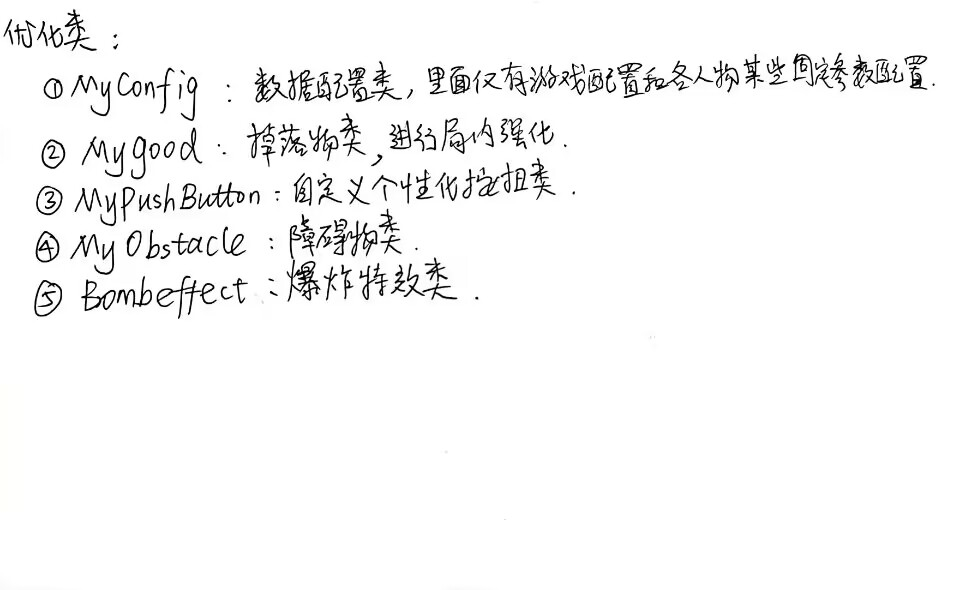 优化类：
① MyConfig：数据配置类，里面仅有游戏配置和各人物某些固定参数配置.
② Mygood：掉落物类，进行局内强化.
③ MyPushButton：自定义个性化按扭类.
④ MyObstacle：障碍物类.
⑤ Bombeffect：爆炸特效类.